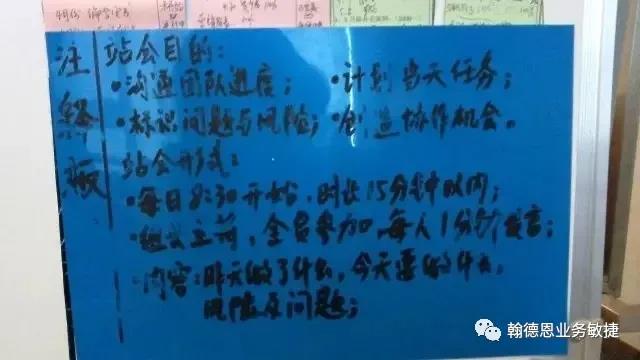 站会目的：
·沟通团队进度；·计划当天任务；
·标识问题与风险；创造协作机会。
站会形式：
·每日8:30开始，时长15分钟以内；
全员参加，每人1分钟发言；
·内容：昨天做了什么，今天要做什么，
风险及问题；
注
板
翰德恩业务敏捷